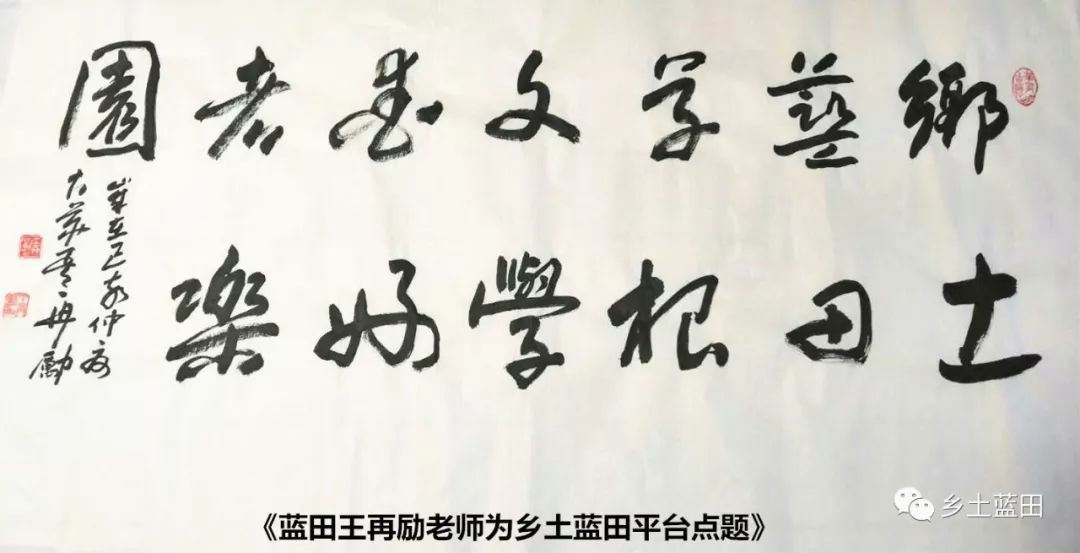 鄉土
藍田
草根
文學
愛好
者樂
園
歲在己亥仲夏
再勵
《蓝田王再励老师为乡土蓝田平台点题》
乡土蓝田